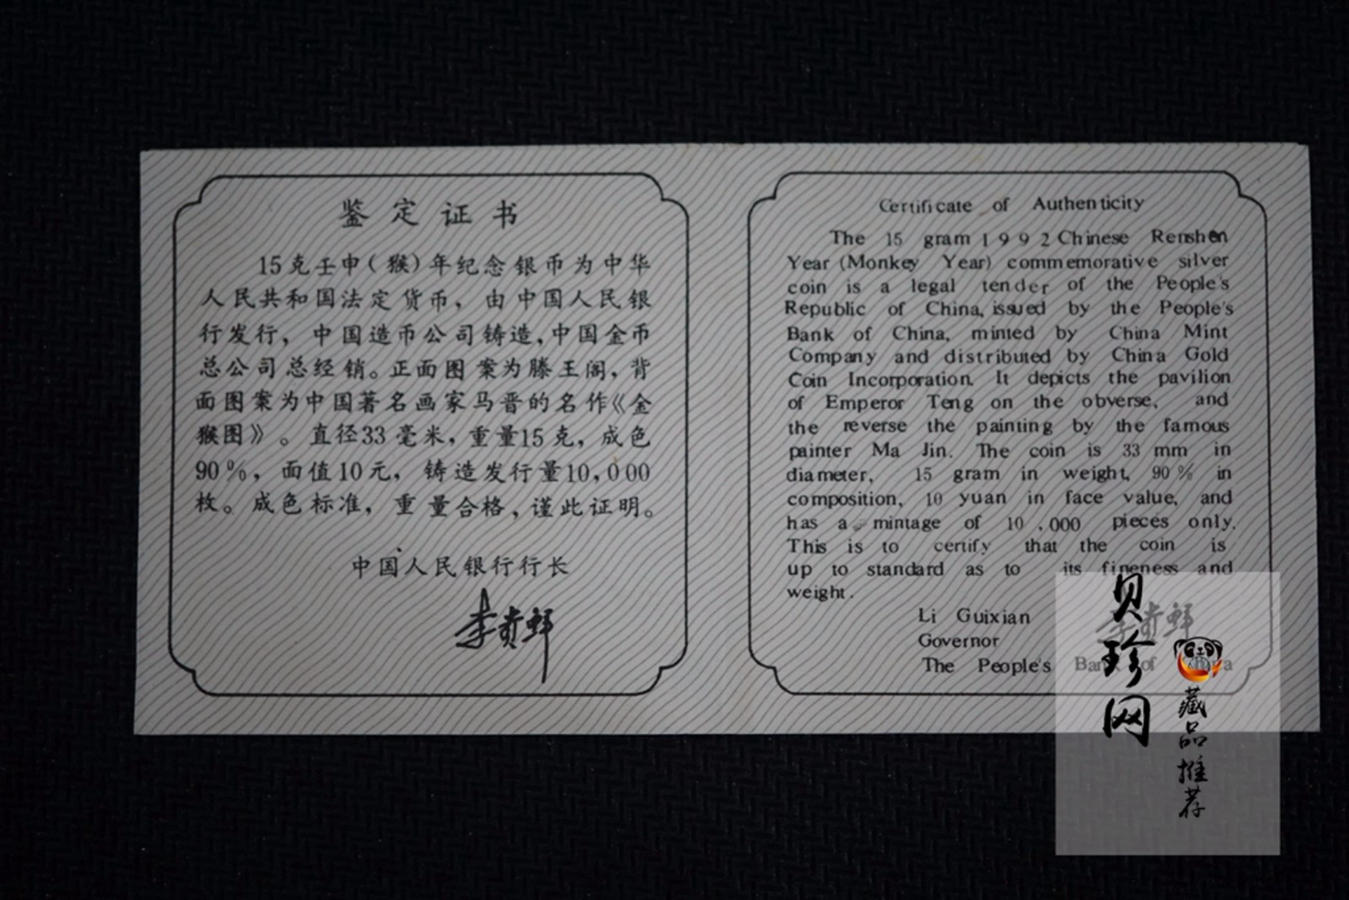 鉴定证书
15克壬申(猴)年纪念银币为中华
人民共和国法定货币，由中国人民银
行发行，中国造币公司铸造，中国金币
总公司总经销。正面图案为滕王阁，背
面图案为中国著名画家马晋的名作《金
猴图》。直径33毫米，重量15克，成色
90%，面值10元，铸造发行量10,000
枚。成色标准，重量合格，谨此证明。
中国人民银行行长
李贵鲜
Certificate of Authenticity
The 15 gram 1992 Chinese Renshen
Year (Monkey Year) commemorative silver
coin is a legal tender of the People's
Republic of China, issued by the People's
Bank of China, minted by China Mint
Company and distributed by China Gold
Coin Incorporation. It depicts the pavilion
of Emperor Teng on the obverse, and
the reverse the painting by the famous
painter Ma Jin. The coin is 33 mm in
diameter, 15 gram in weight, 90% in
composition, 10 yuan in face value, and
has a mintage of 10,000 pieces only.
This is to certify that the coin is
up to standard as to its fineness and
weight.
Li Guixian 李贵鲜
Governor
The People's Bank of China
贝珍网
藏品推荐